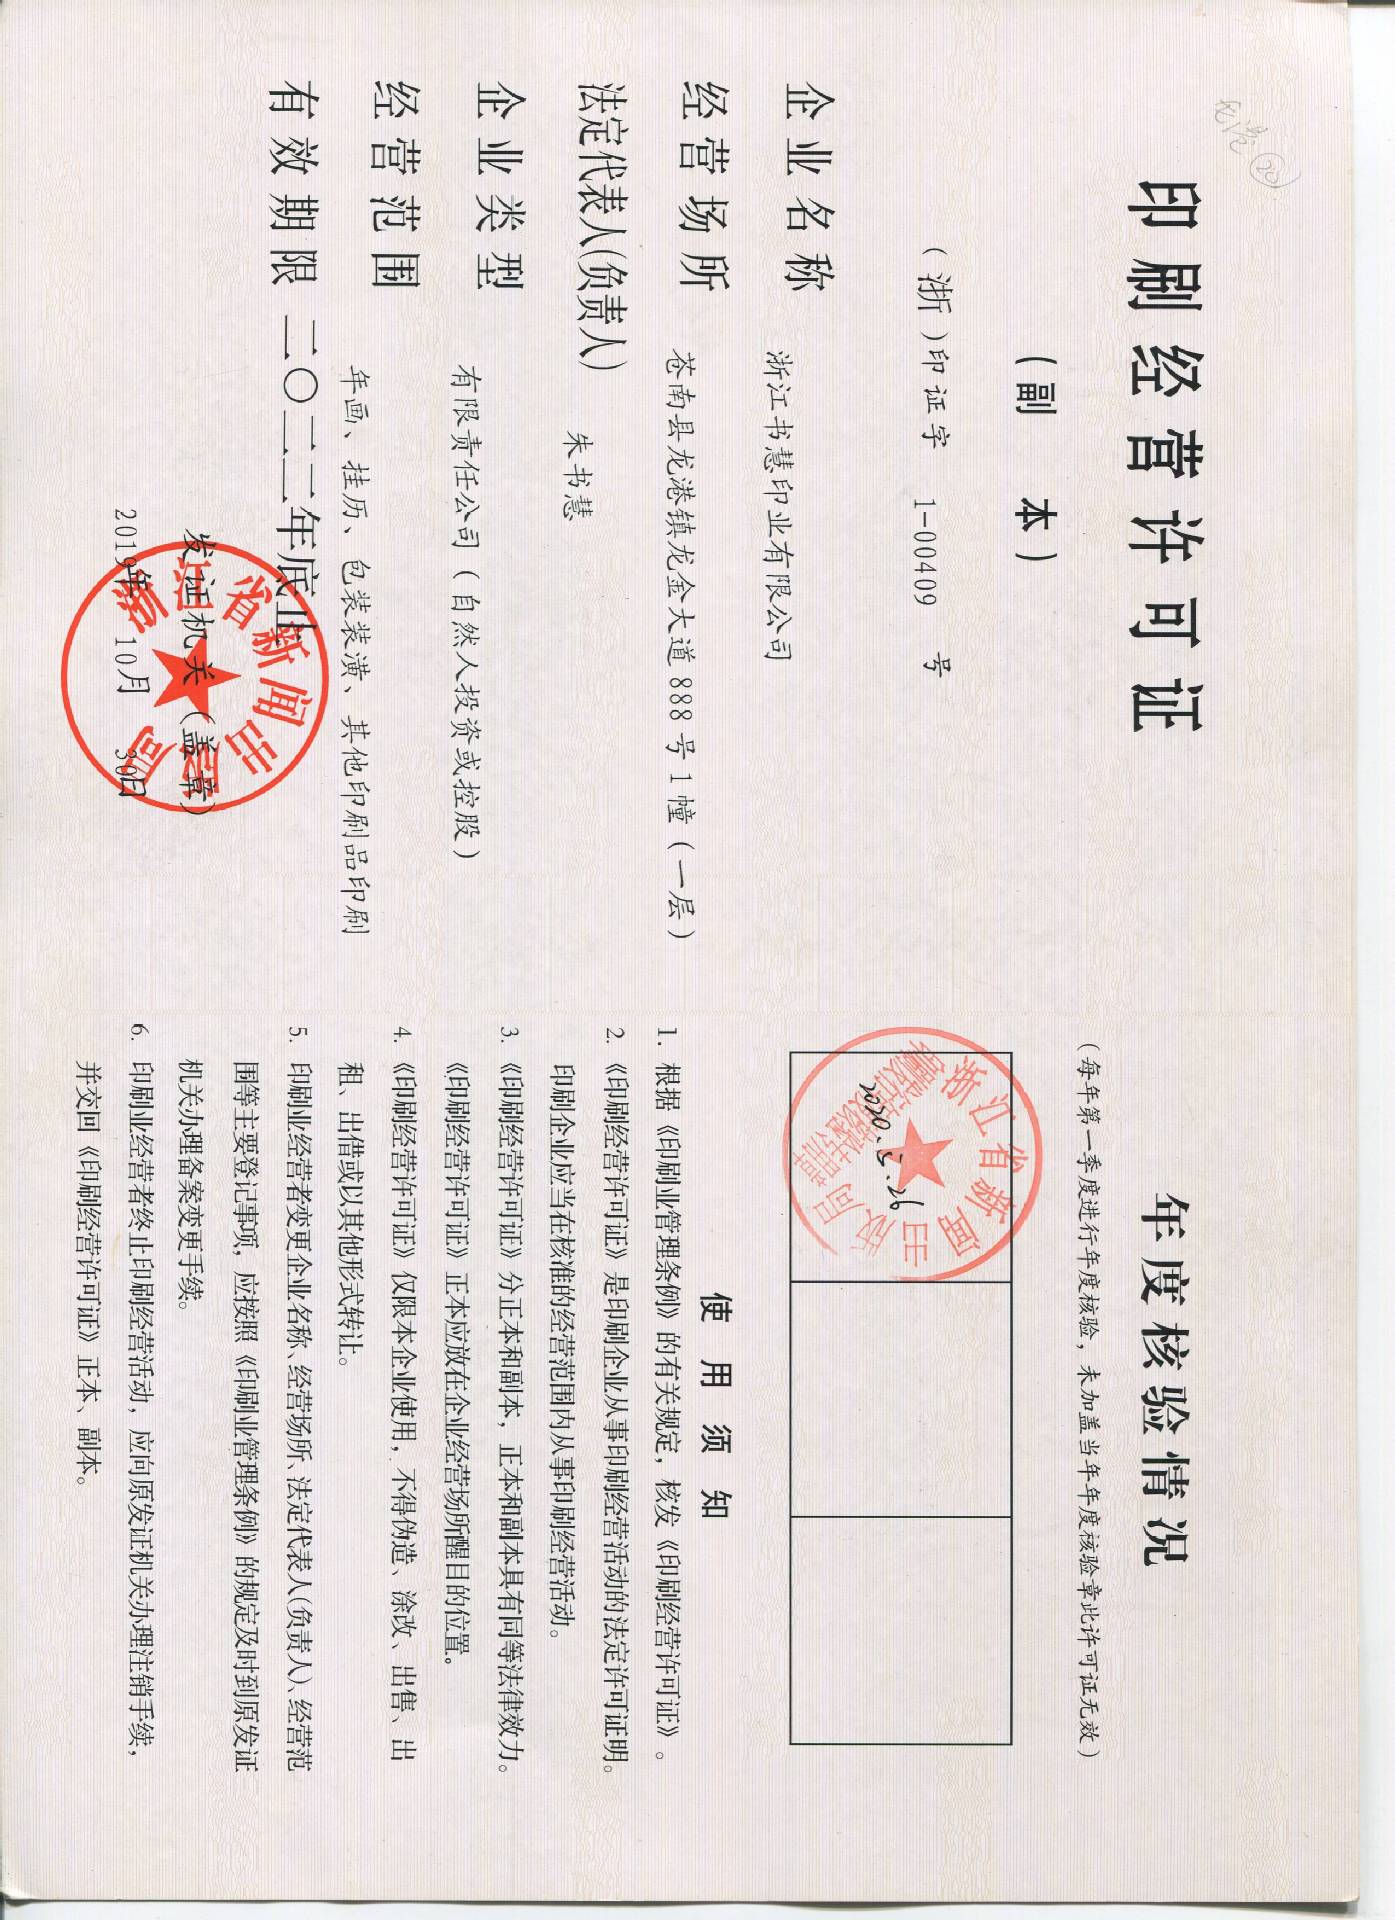 印刷经营许可证
（副 本）
（浙）印证字 1-00409 号
企业名称 浙江书慧印业有限公司
经营场所 苍南县龙港镇龙金大道888号1幢（一层）
法定代表人(负责人) 朱书慧
企业类型 有限责任公司（自然人投资或控股）
经营范围 年画、挂历、包装装潢、其他印刷品印刷
有效期限 二〇二二年底止
发证机关（盖章）
2019年 10月 30日
浙江省新闻出版局
年度核验情况
（每年第一季度进行年度核验，未加盖当年年度核验章此许可证无效）
浙江省新闻出版局
2020.5.26
使用须知
1. 根据《印刷业管理条例》的有关规定，核发《印刷经营许可证》。
2.《印刷经营许可证》是印刷企业从事印刷经营活动的法定许可证明。
印刷企业应当在核准的经营范围内从事印刷经营活动。
3.《印刷经营许可证》分正本和副本，正本和副本具有同等法律效力。
《印刷经营许可证》正本应放在企业经营场所醒目的位置。
4.《印刷经营许可证》仅限本企业使用，不得伪造、涂改、出售、出
租、出借或以其他形式转让。
5. 印刷业经营者变更企业名称、经营场所、法定代表人(负责人)、经营范
围等主要登记事项，应按照《印刷业管理条例》的规定及时到原发证
机关办理备案变更手续。
6. 印刷业经营者终止印刷经营活动，应向原发证机关办理注销手续，
并交回《印刷经营许可证》正本、副本。